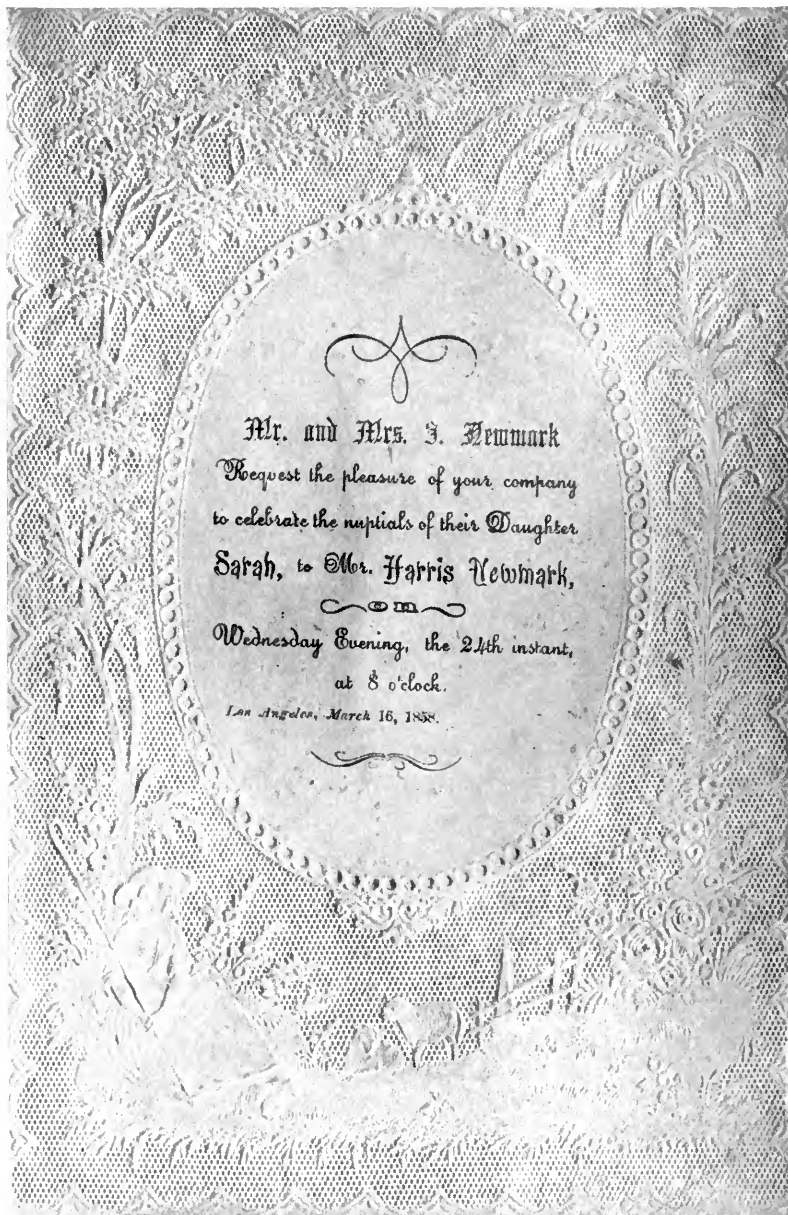 Mr. and Mrs. J. Newmark
Request the pleasure of your company
to celebrate the nuptials of their Daughter
Sarah, to Mr. Harris Newmark,
on
Wednesday Evening, the 24th instant,
at 8 o'clock.
Los Angeles, March 16, 1858.